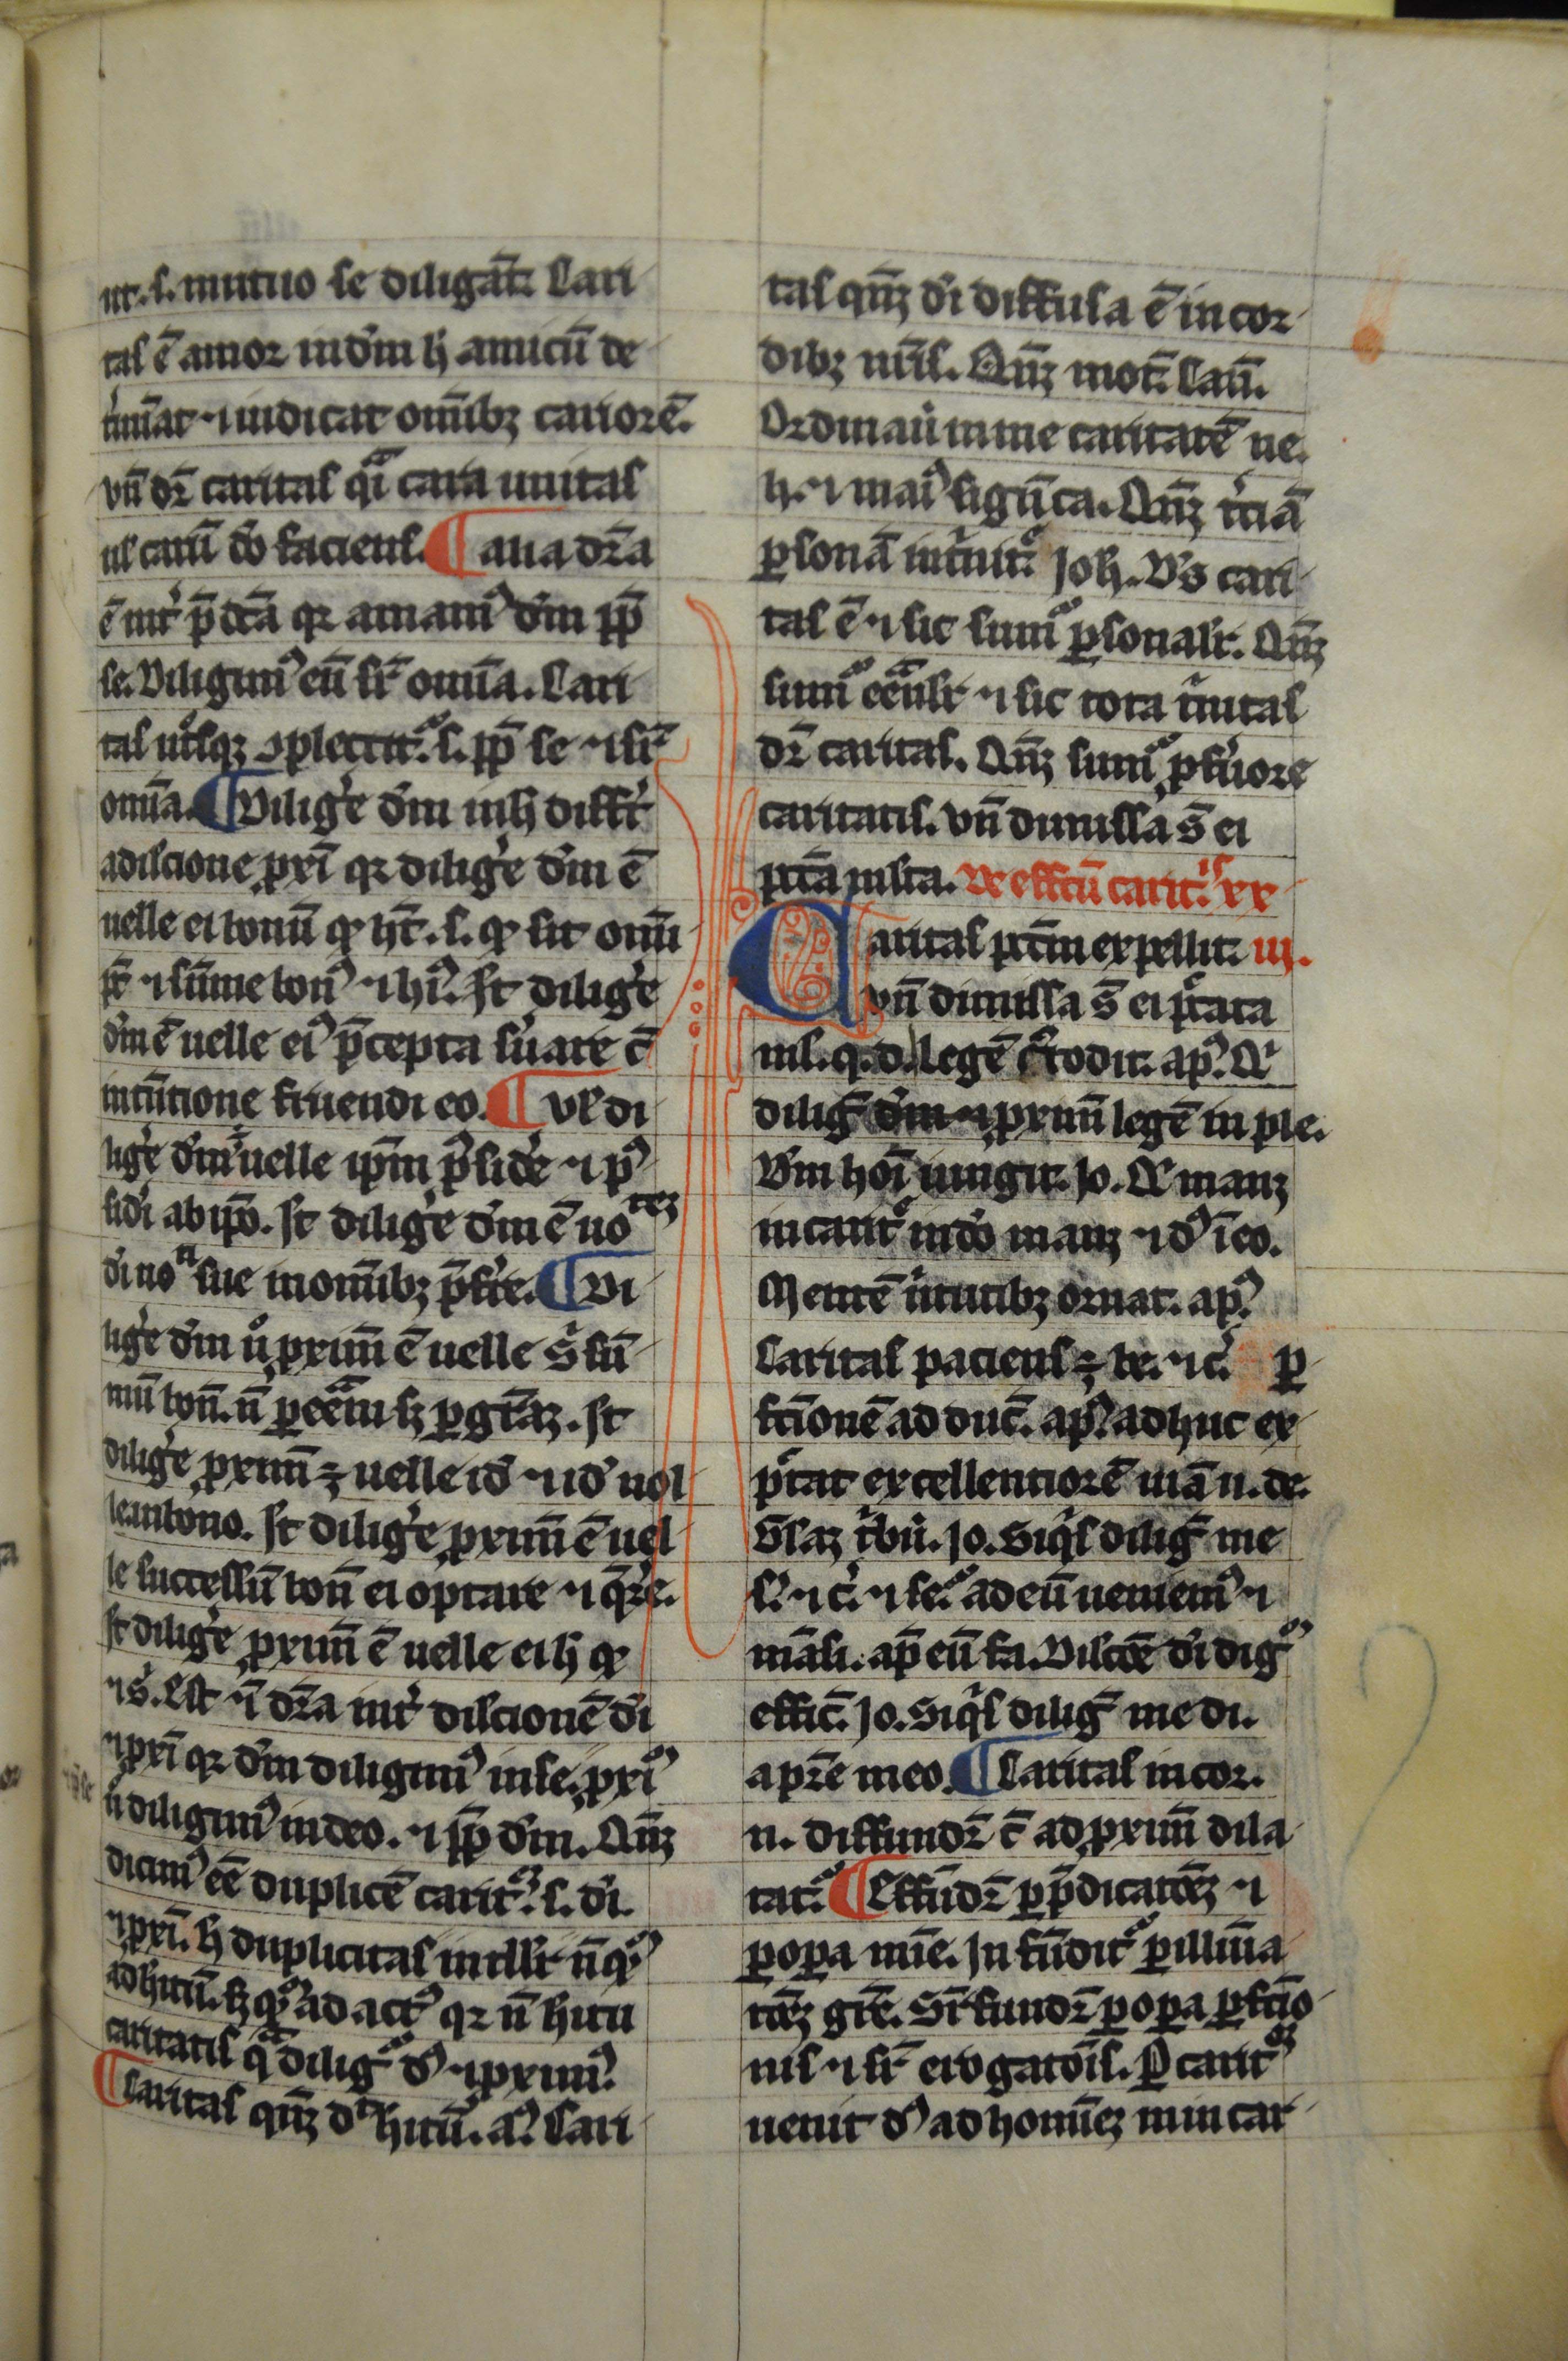 ur. s. mutuo se diligāt. Cari
tas ē amor in dm̄ h̄ amicū de
t̉mīat ⁊ iudicat omībꝫ cariorē.
vn̄ dr̄ caritas qͣi cara unitas
ul carū dō faciens. ¶ alia dr̄a
ē int̉ p̄dc̄a qꝛ amamꝰ dm̄ ꝓp̄
se. Diligimꝰ eū sr̄ omīa. Cari
tas ut̉sqꝫ ꝯplectit᷑. s. ꝓp̄ se ⁊ sr̄
omīa. ¶ Dilig̉e dm̄ in h̄ diff̉t
a dilcione ꝓxī qꝛ dilig̉e dm̄ ē
uelle ei bonū qͦ hr̄. s. qͦ sit omī
pr̄ ⁊ sūme bonꝰ ⁊ hꝰ. st̄ dilig̉e
dm̄ ē uelle eiꝰ p̄cepta s̉uare c̄
intētione fruendi eo. ¶ Ul̄ di
lig̉e dm̄ uelle ip̄m p̄sid̉e ⁊ pꝰ
sidi ab ip̄o. st̄ dilig̉e dm̄ ē uo
di no sue in omībꝫ p̄f̉re. ¶ Di
lig̉e dm̄ uͦ ꝓximū ē uelle s̄ sū
mū bonū. n̄ ꝑ eēm̄ sꝫ ꝑ gr̄aꝫ. st̄
dilig̉e ꝓximū ÷ uelle id̄ ⁊ id̄ nol
le. in bono. st̄ dilig̉e ꝓximū ē uel
le successū bonū ei optare ⁊ qͣr̉e.
st̄ dilig̉e ꝓximū ē uelle ei h̄ qͦ
⁊ s̉. Est ⁊ dr̄a int̉ dilcionē di
⁊ ꝓxi qꝛ dm̄ diligimꝰ in se. ꝓxī
ū diligimꝰ in deo. ⁊ ꝓp̄ dm̄. Qn̄ꝫ
dicimꝰ eē duplicē carit̉. s. di.
⁊ ꝓxī. h̄ duplicitas intllr̄ n̄ qͦ
ad hitū. sꝫ qͦ ad actꝰ qꝛ n̄ hitu
caritatis qͣ dilig᷑ dꝰ ⁊ ꝓximꝰ.
¶ Caritas qn̄ꝫ dr̄ hitū. aꝰ. Cari
tas qn̄ꝫ di diffusa ē in cor
dibꝫ nr̄is. Qn̄ꝫ mot̄. Cān̄.
Ordinauit in me caritatē ue.
h. ⁊ maiꝰ sigūca. Qn̄ꝫ t̉ciā
ꝑsonā int̉uit᷑ Joh. Ds̄ cari
tas ē ⁊ sic sumit᷑ ꝑsonalr̄. Qn̄ꝫ
sumit᷑ eēnlr̄ ⁊ sic tota t̉nitas
dr̄ caritas. Qn̄ꝫ sumit᷑ ꝓ f̉uore
caritatis. vn̄ dimissa s̄ ei
pctā multa. De effctū carit̉. xx
Caritas pctm̄ expellit. iij.
vn̄ dimissa s̄ ei pctata
mł. q. d. Legē cͣtodit. apꝰ. Qͥ
dilig᷑ dm̄ ⁊ ꝓximū legē imple.
Dm̄ hoī iungit. Jo. Qͥ manꝫ
in carit̉ in dō manꝫ ⁊ dꝰ ī eo.
Mentē ūtutibꝫ ornat. apꝰ.
Caritas paciens ÷ be. ⁊ c̉. ꝑ
fctionē ad ducc̄. apꝰ. adhuc ex
pͣtat excellentiorē uiā u. de.
Jo. Siqͥs dilig᷑ me
s̉. ⁊ c̉. ⁊ se. ad eū ueniemꝰ ⁊
māsi. ap̄ eū fa. Dilcōe di dig᷑
effic̄. Jo. Siqͥs dilig᷑ me di.
a pr̄e meo. ¶ Caritas in cor.
n. diffundr̄ c̄ ad ꝓximū dila
tat᷑. ¶ Effūdr̄ ꝑ p̄dicatōꝫ ⁊
ꝑ opa mīe. Infūdit᷑ ꝑ illuīa
tōꝫ gr̄e. Sr̄fundr̄ ꝑ opa ꝑfctio
nis ⁊ sr̄ erogatōis. Ꝑ carit̉
uenit dꝰ ad homīeꝫ mincar